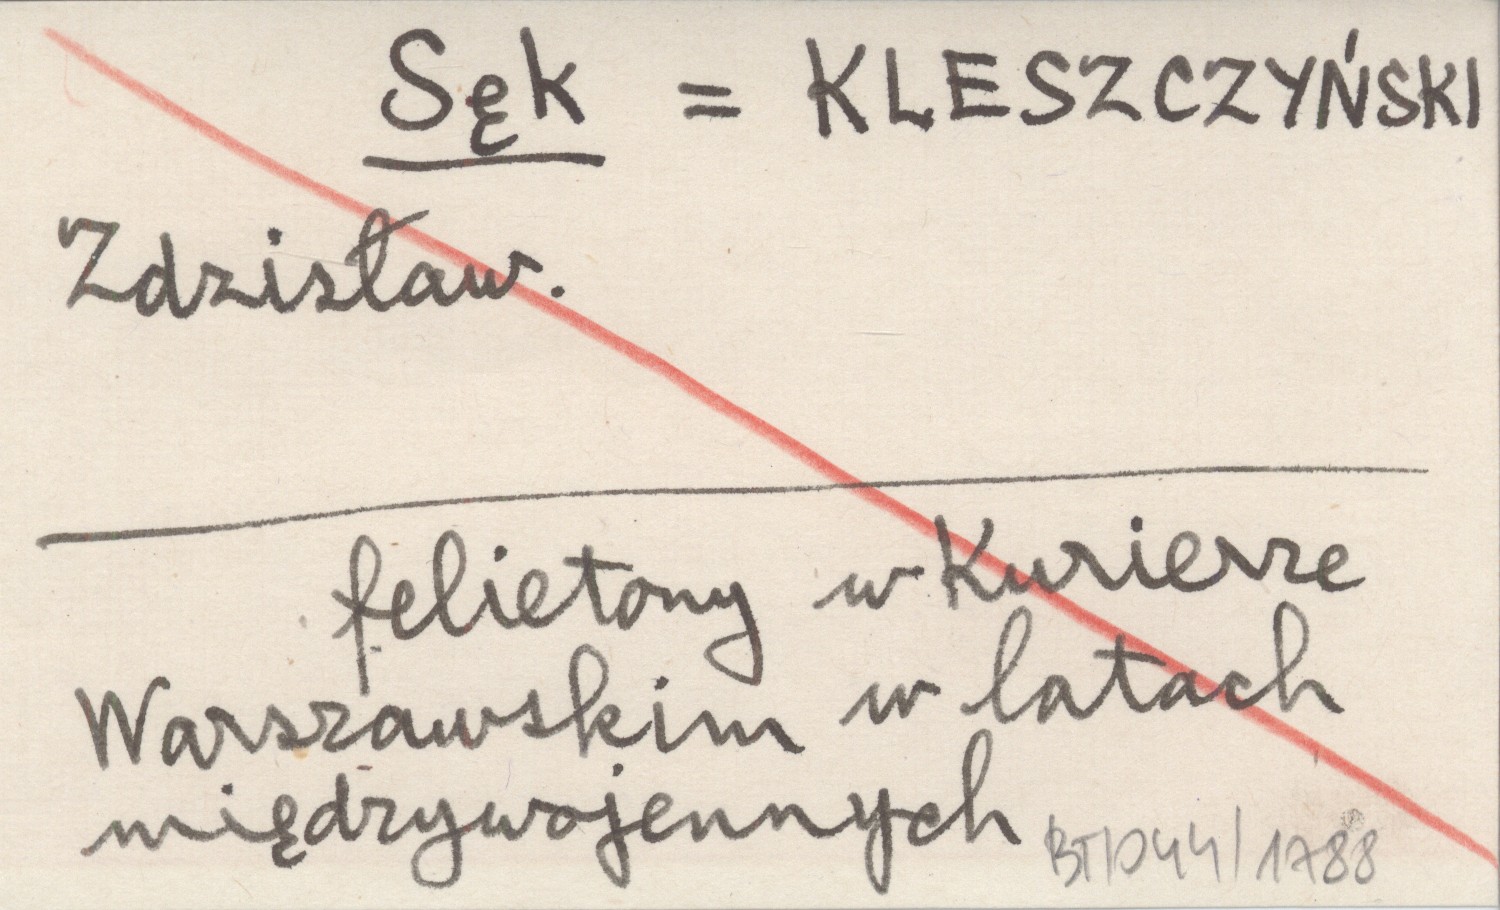 Sęk = KLESZCZYŃSKI
Zdzisław.
felietony w Kurierze
Warszawskim w latach
międzywojennych
BT/044/1788